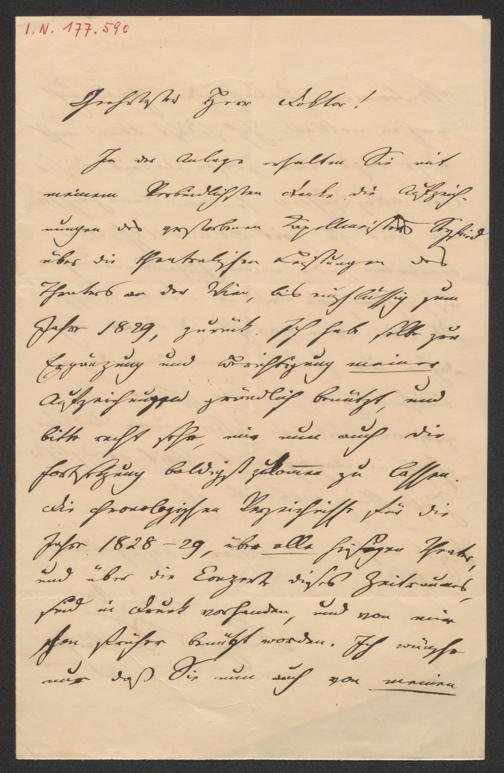 I. N. 177.590
Geehrtester Herr Doktor!
In der Anlage erhalten Sie mit
meinem verbindlichsten Danke die Aufzeich-
nungen des gestorbenen Kapellmeisters Seyfried
über die theatralischen Leistungen des
Theaters an der Wien, bis einschlüssig zum
Jahre 1829, zurück. Ich habe selbe zur
Ergänzung und Berichtigung meiner
Aufzeichnungen gründlich benützt, und
bitte recht sehr, mir nun auch die
Fortsetzung baldigst zukommen zu lassen.
Die chronologischen Verzeichnisse für die
Jahre 1828-29, über alle hiesigen Theater,
und über die Conzerte dieses Zeitraumes,
sind in Druck vorhanden, und von mir
schon früher benützt worden. Ich wünsche
nur daß Sie nun auch von meinen